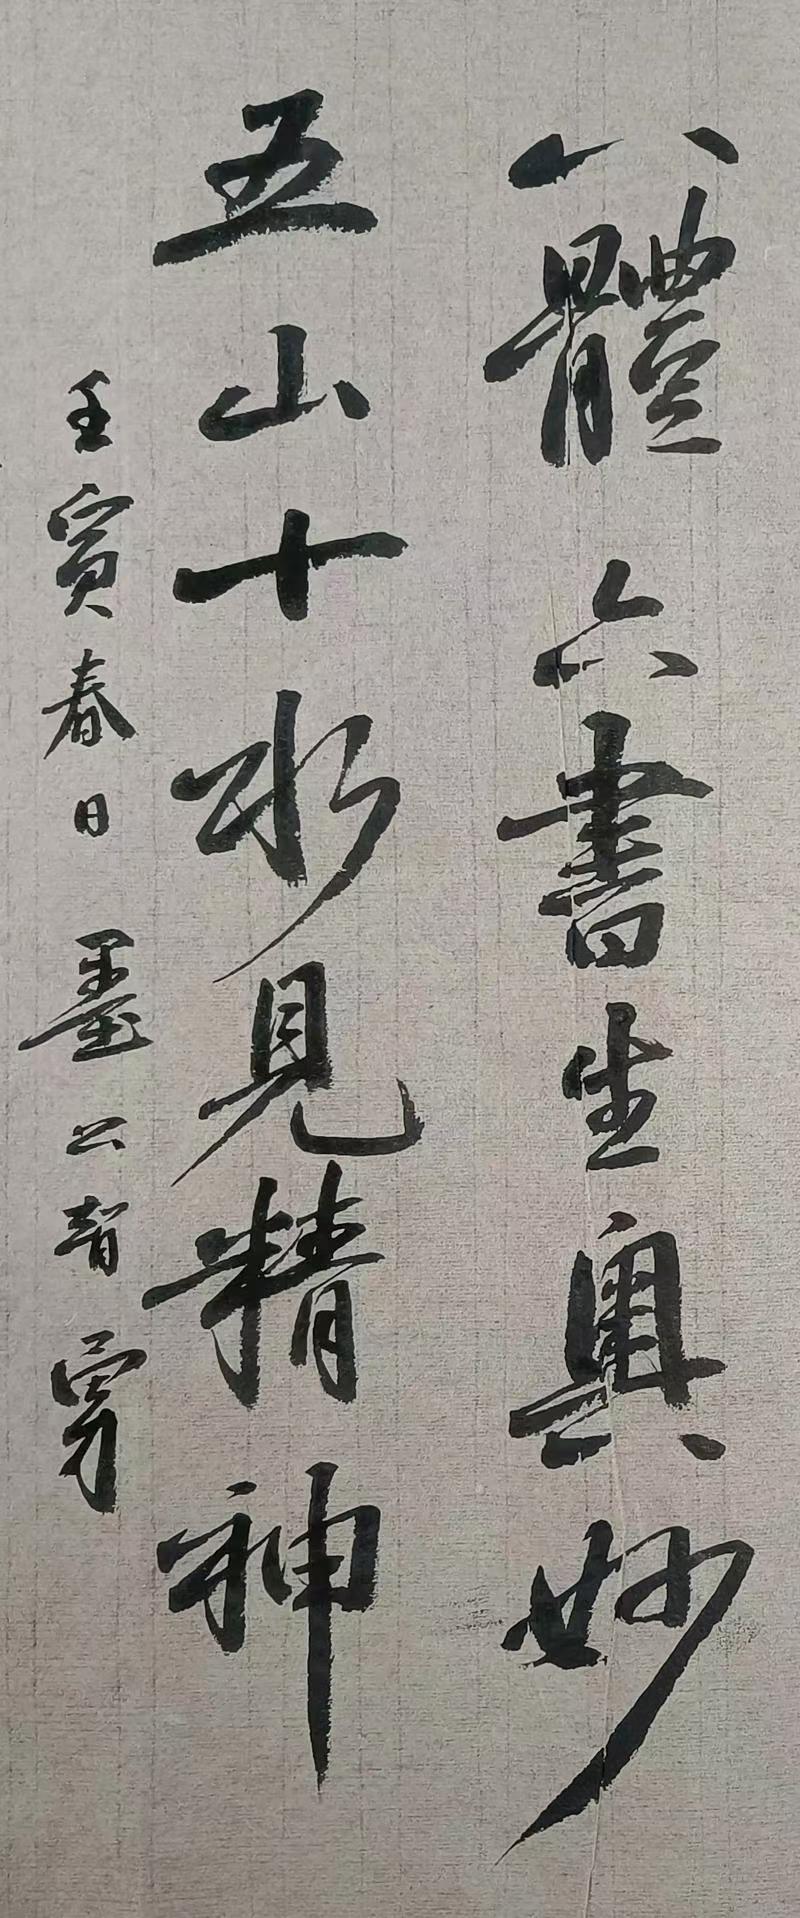 八體六書生奥妙
五山十水見精神
壬寅春日墨公智勇